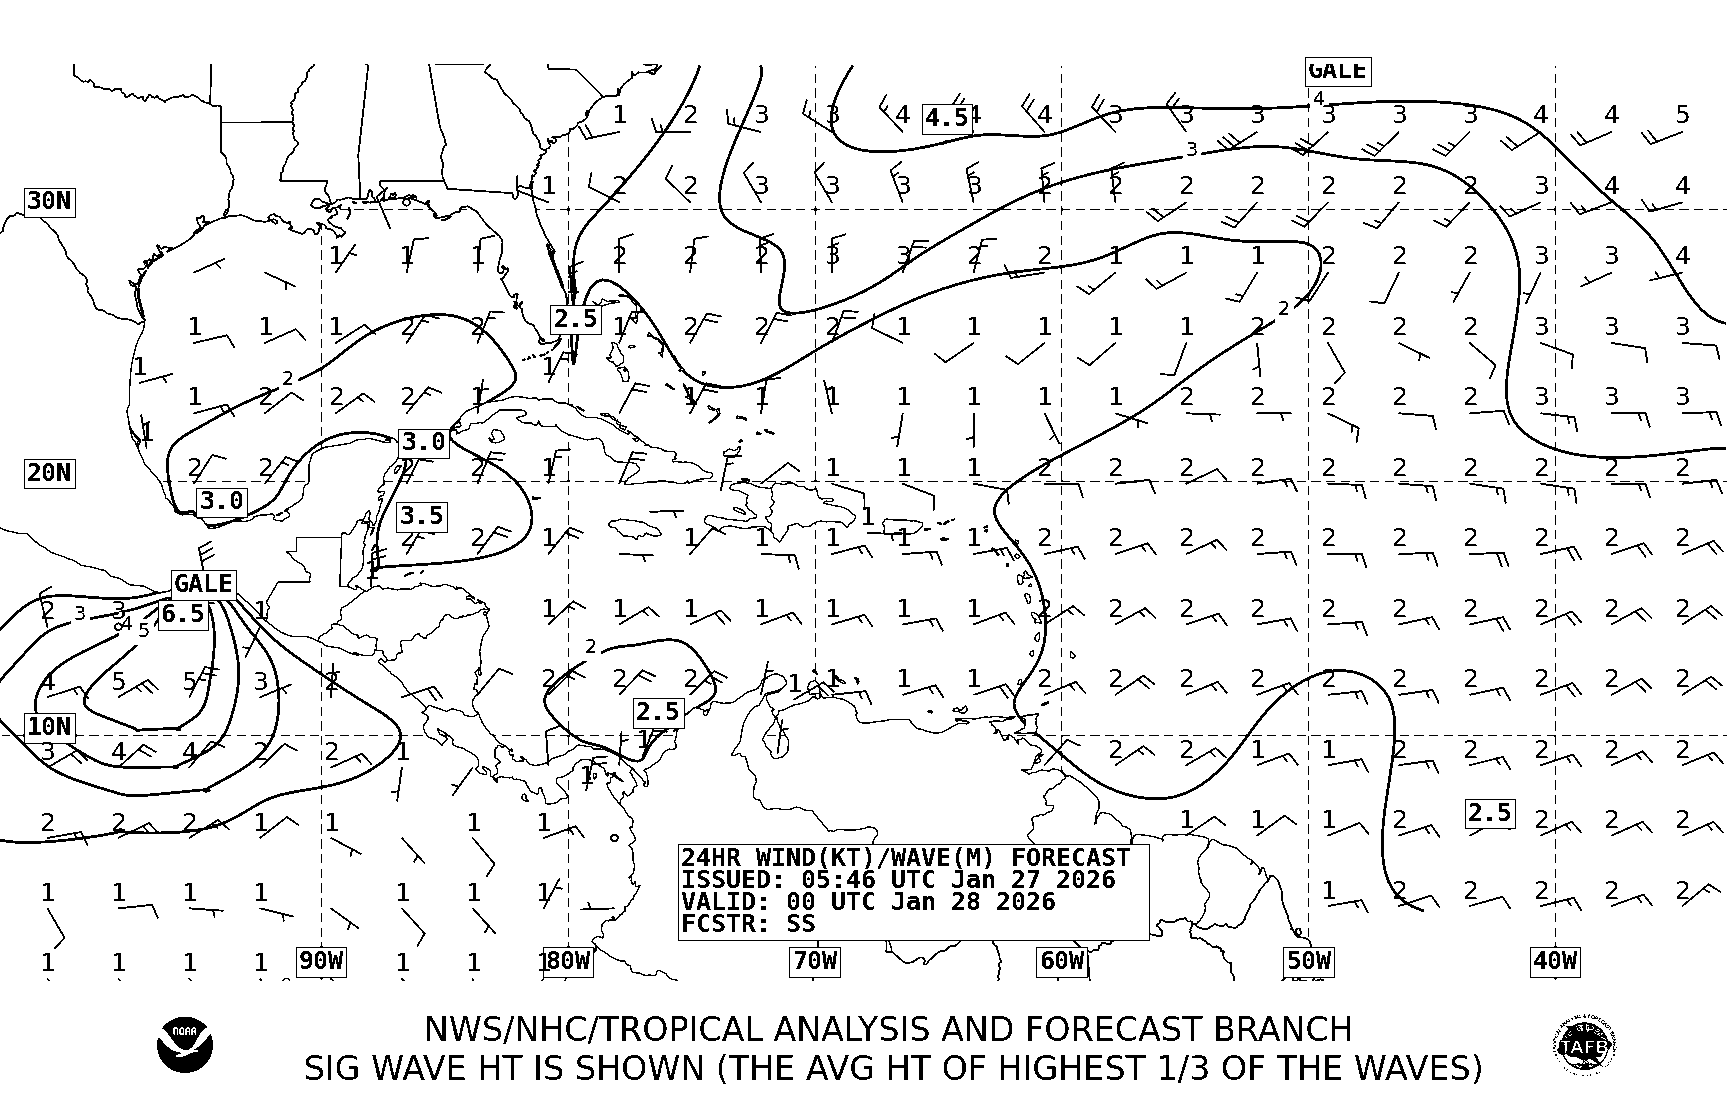 GALE
4
1 2 3 3 4 4.5 4 4 3 3 3 3 3 3 4 4 5
3
30N
1 2 2 3 3 3 3 2 2 2 2 2 2 2 3 4 4
1 1 1 2 2 2 3 3 2 2 1 1 1 2 2 2 3 3 4
2
2.5
1 1 1 2 2 1 2 2 2 1 1 1 1 1 2 2 2 2 3 3 3
1 1
2
1 2 2 2 1 1 1 1 1 1 1 1 2 2 2 2 2 3 3 3
1
3.0
20N
2 2 2 2 1 1 1 1 2 2 2 2 2 2 2 2 2 2
3.0
3.5
1
2 2 1 1 1 1 1 1 2 2 2 2 2 2 2 2 2 2
GALE
1
2 3 3 1 1 1 1 1 1 1 1 2 2 2 2 2 2 2 2 2 2
6.5
4
5
2
4 5 5 3 2 2 2 2 1 1 1 1 2 2 2 2 2 2 2 2 2 2
2.5
10N
1
3 4 4 2 2 1 2 2 1 1 2 2 2 2 2
1
2 2 2 1 1 1 1 1 1 1 2 2.5 2 2 2
24HR WIND(KT)/WAVE(M) FORECAST
ISSUED: 05:46 UTC Jan 27 2026
VALID: 00 UTC Jan 28 2026
FCSTR: SS
1 1 1 1 1 1 1 1 2 2 2 2 2
1 1 1 1 90W 1 1 1 80W 70W 60W 50W 40W
NOAA
NWS/NHC/TROPICAL ANALYSIS AND FORECAST BRANCH
SIG WAVE HT IS SHOWN (THE AVG HT OF HIGHEST 1/3 OF THE WAVES)
TAFB